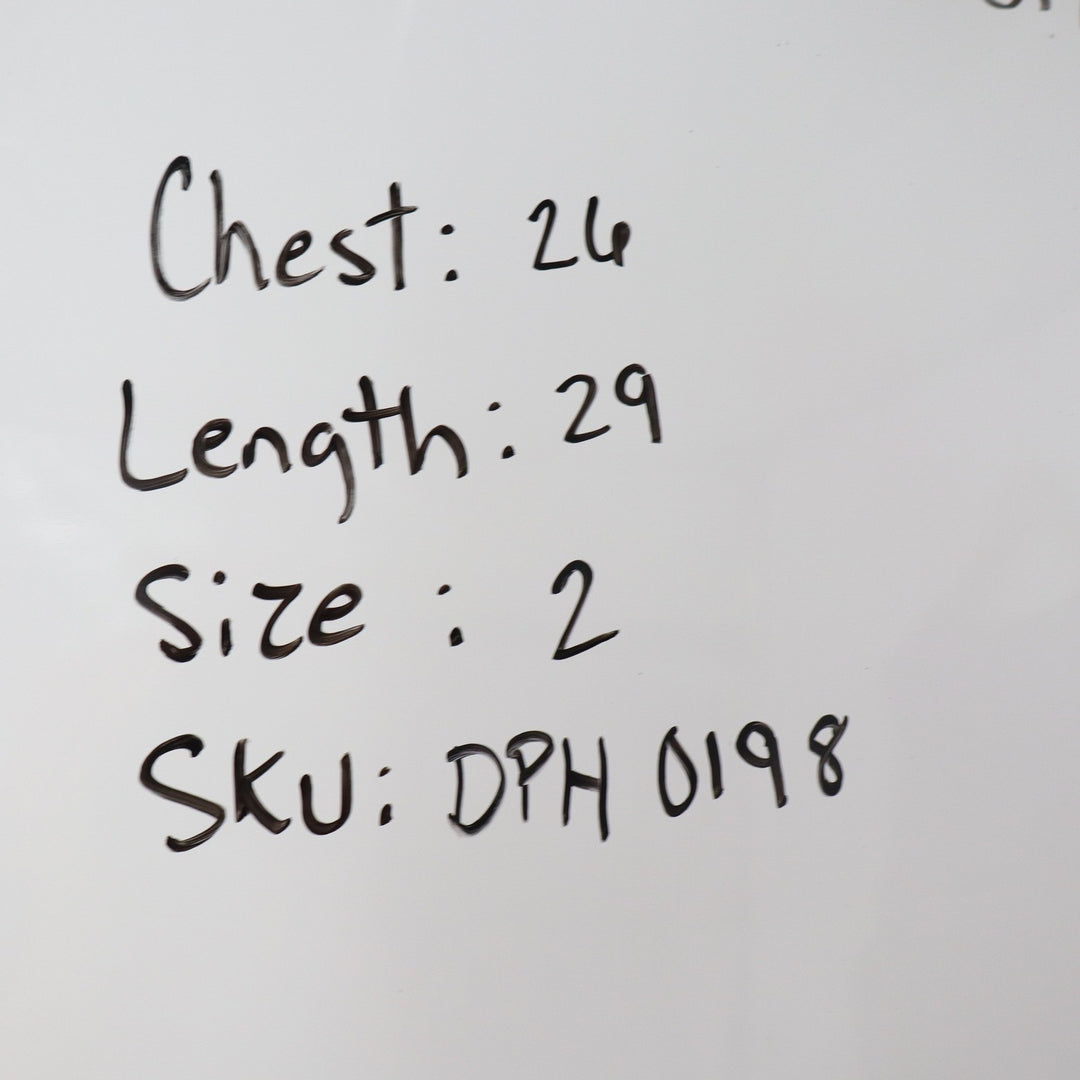 Chest: 26
Length: 29
Size : 2
SKU: DPH 0198